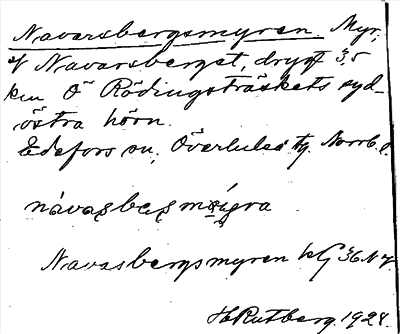 Navarsbergsmyren. Myr.
V Navarsberget, drygt 3,5
km Ö Rödingsträskets syd-
östra hörn.
Edefors sn, Överluleå tg. Norrb. l.
Navasbergsmyren kG 36 NV
H. Rutberg. 1924.